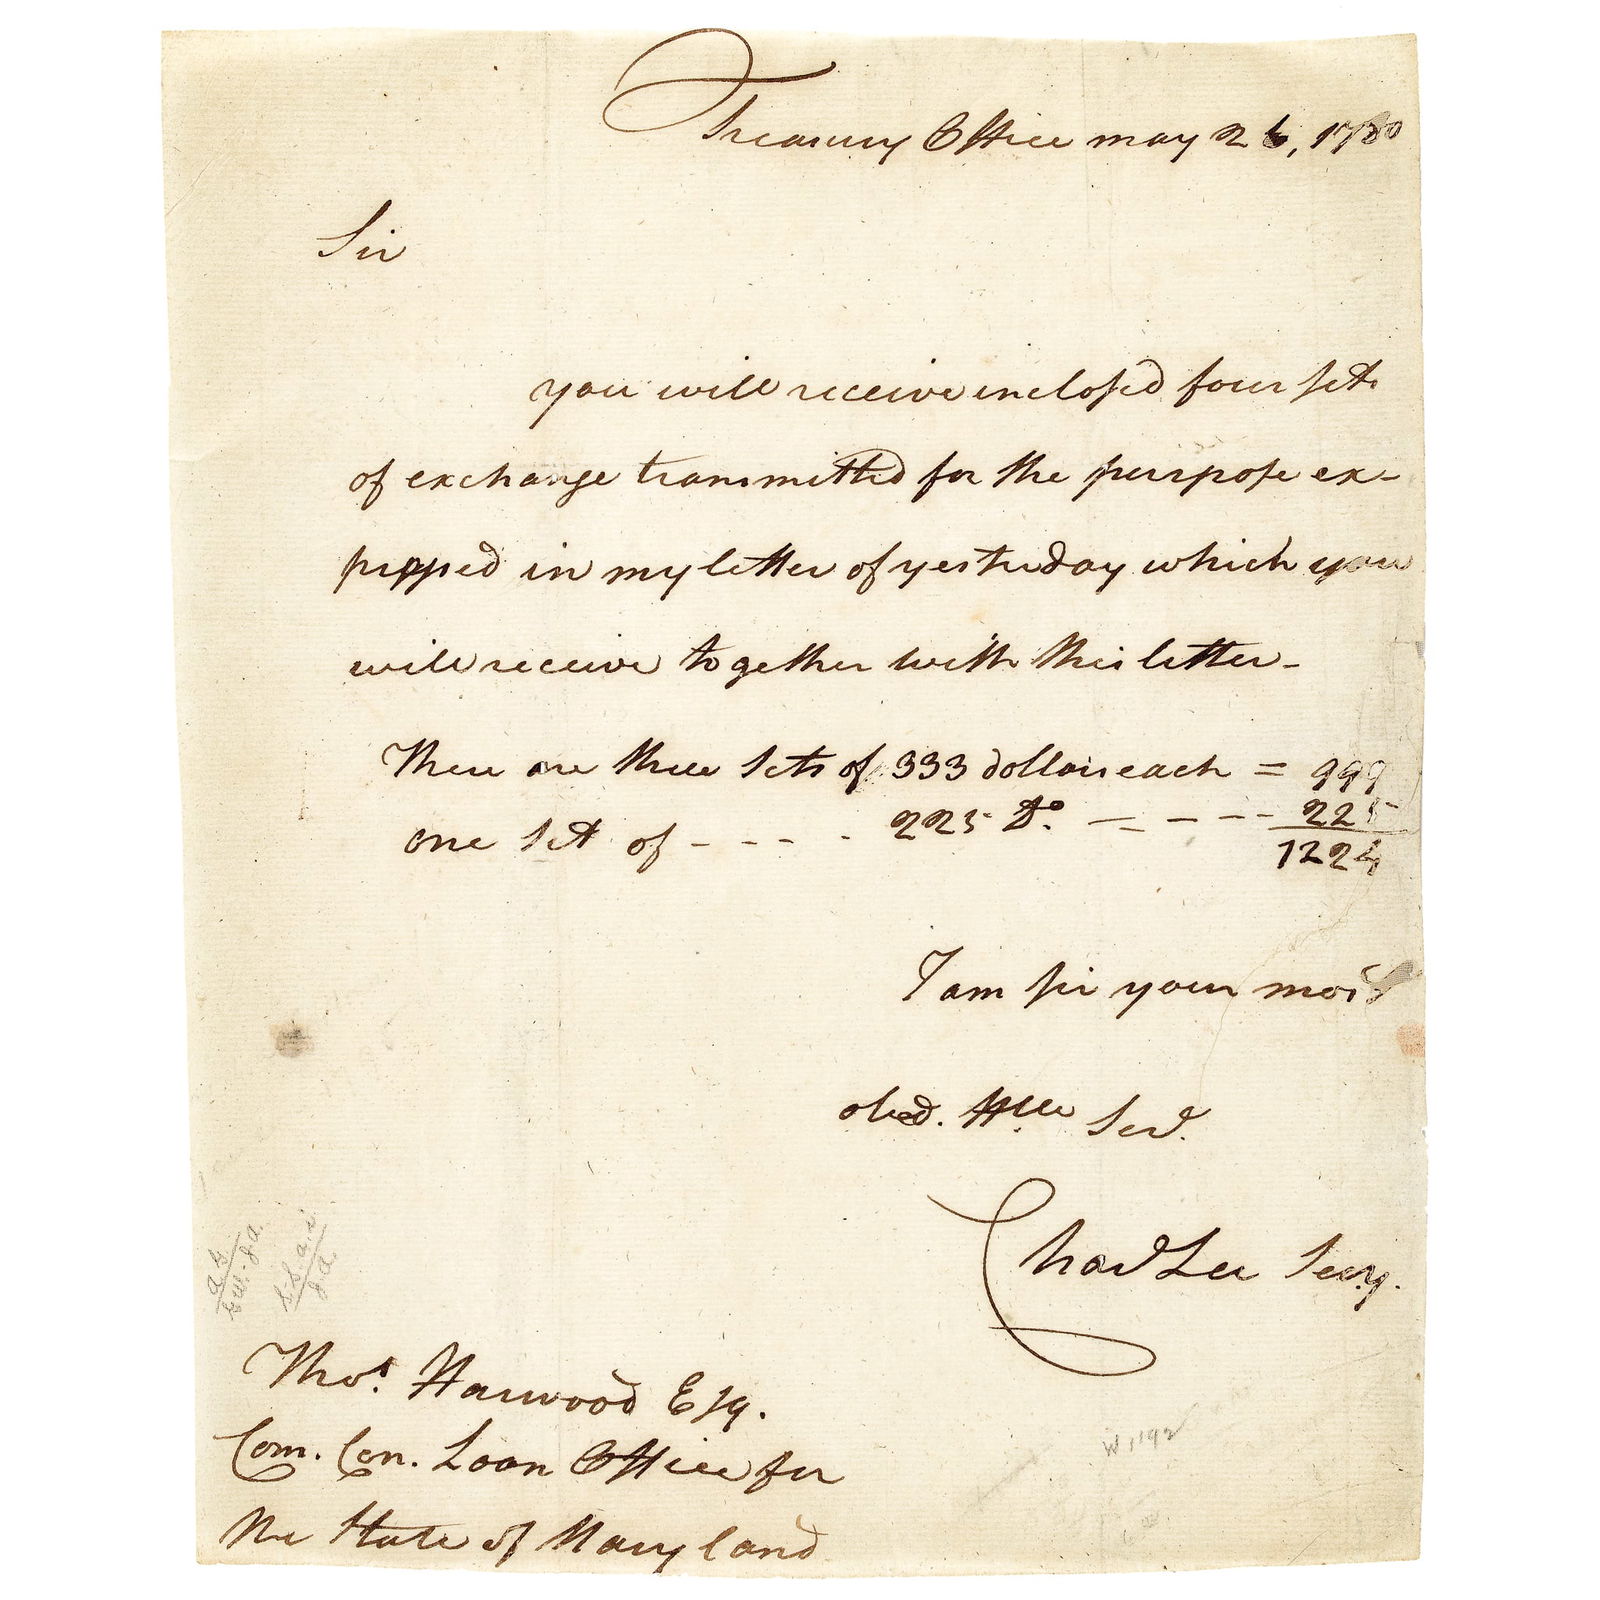 Treasury Office may 26, 1780
Sir
you will receive inclosed four sets
of exchange transmitted for the purpose ex-
pressed in my letter of yesterday which you
will receive together with this letter-
There are three Sets of 333 dollars each = 999
one Set of - - - - 225 Do. - - - - - 225
1224
I am sir your most
obed. Hble Serv.
Chas Lee Secy.
Thos. Harwood Esq.
Com. Con. Loan Office for
the State of Maryland
W 1192